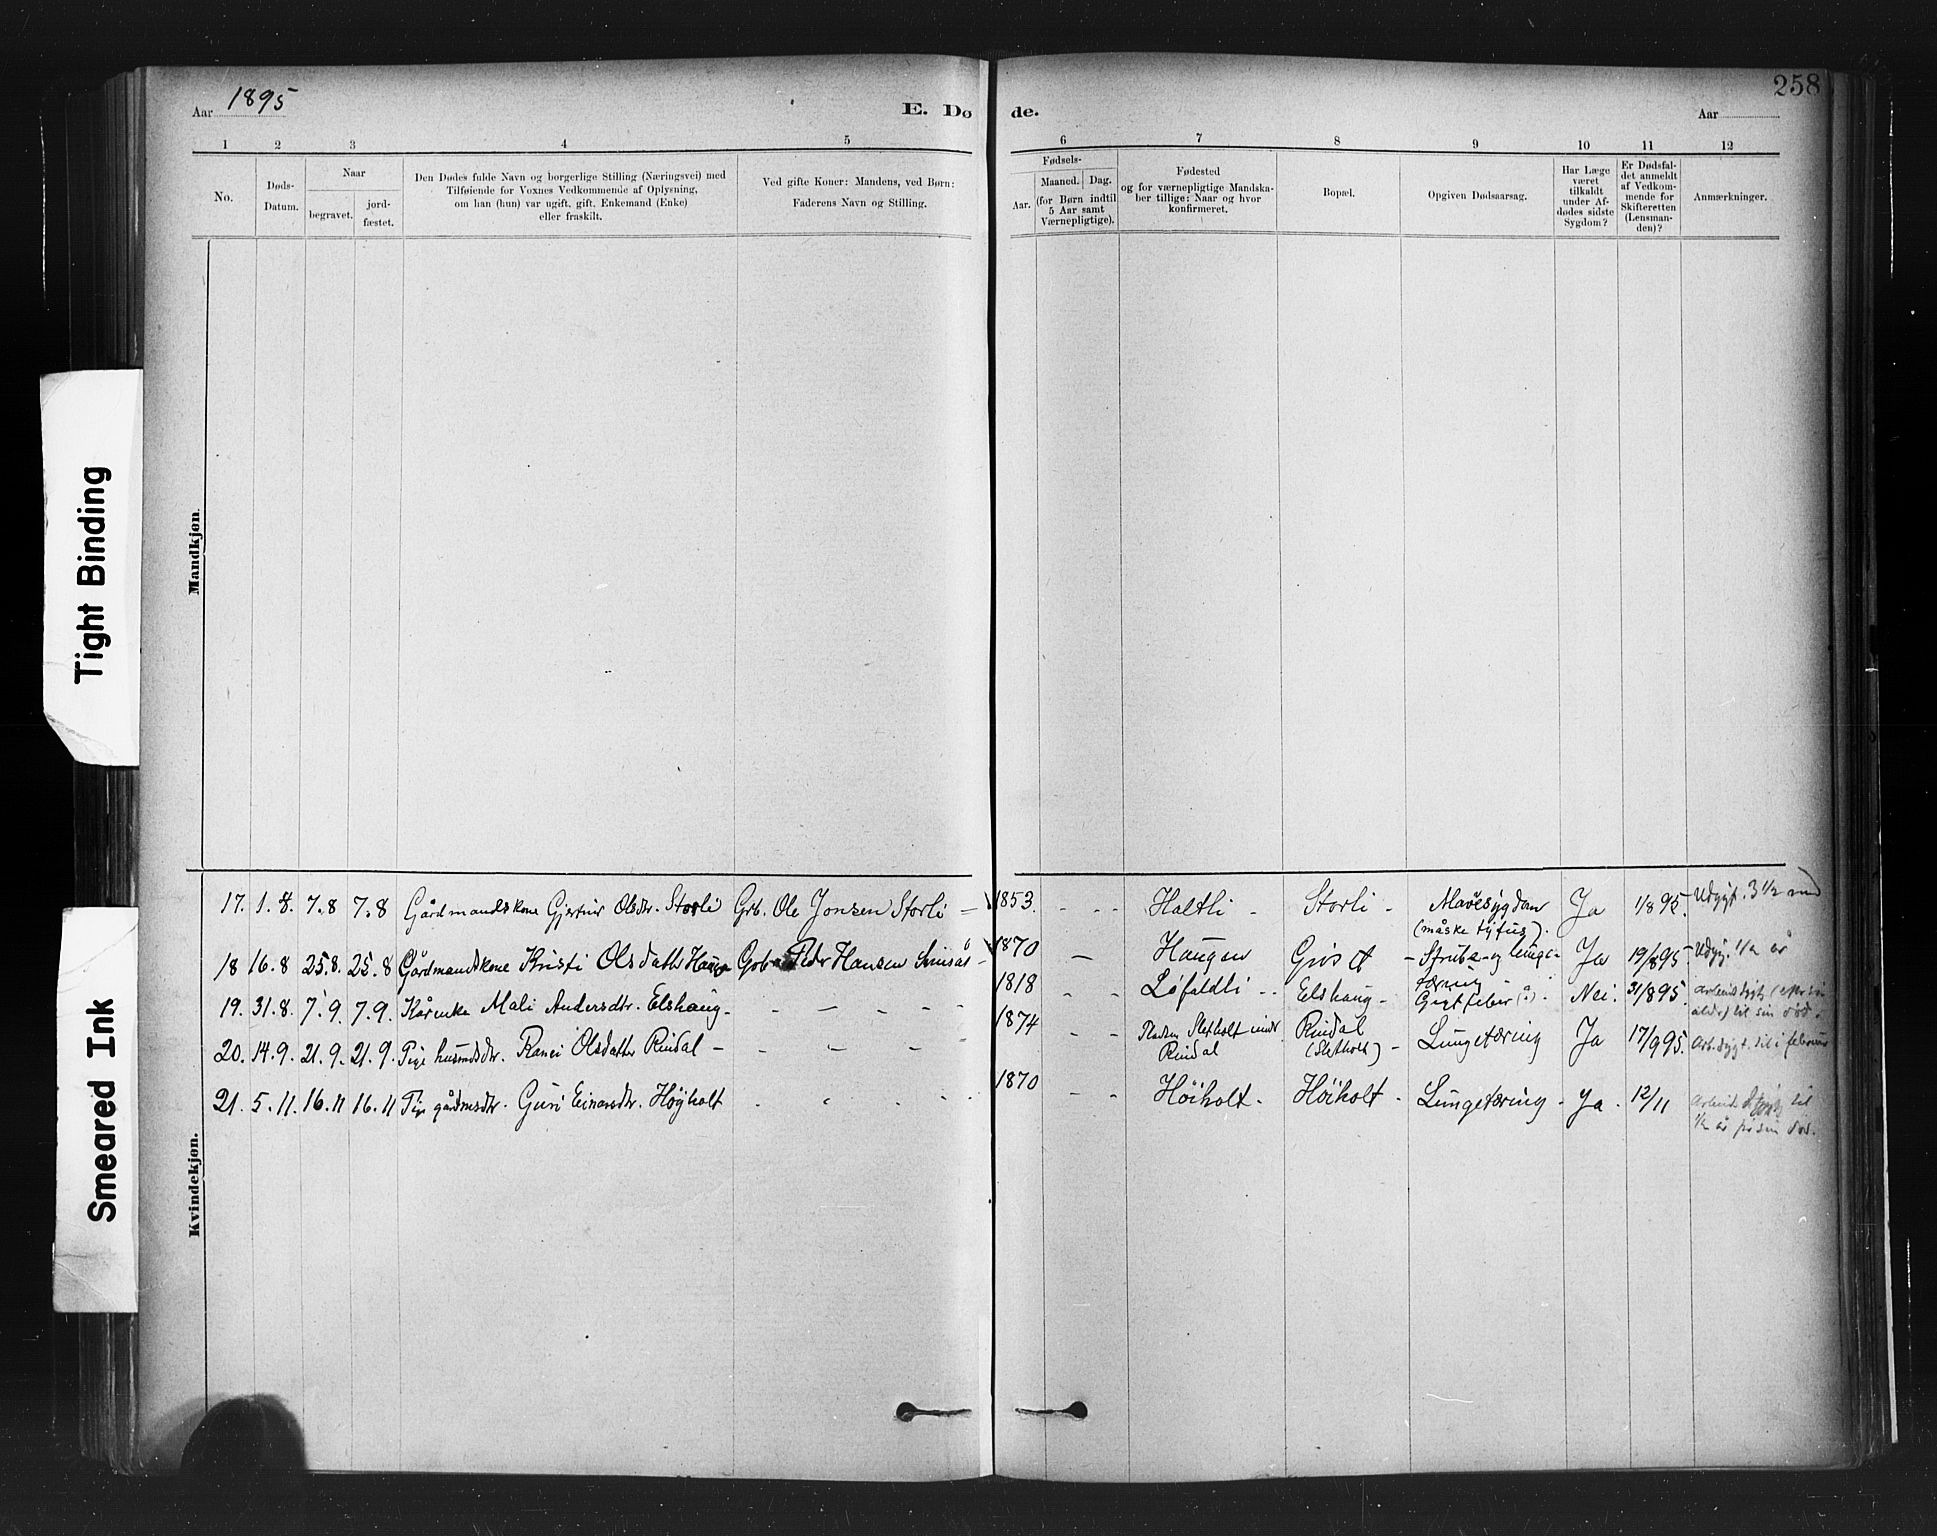 258
Aar 1895
E. Dø de.
Aar
1 2 3 4 5 6 7 8 9 10 11 12
No.
Døds-
Datum.
Naar
begravet.
jord-
fæstet.
Den Dødes fulde Navn og borgerlige Stilling (Næringsvei) med
Tilføiende for Voxnes Vedkommende af Oplysning,
om han (hun) var ugift, gift, Enkemand (Enke)
eller fraskilt.
Ved gifte Koner: Mandens, ved Børn:
Faderens Navn og Stilling.
Fødsels-
Aar.
Maaned. Dag.
(for Børn indtil
5 Aar samt
Værnepligtige).
Fødested
og for værnepligtige Mandska-
ber tillige: Naar og hvor
konfirmeret.
Bopæl.
Opgiven Dødsaarsag.
Har Læge
været
tilkaldt
under Af-
dødes sidste
Sygdom?
Er Dødsfal-
det anmeldt
af Vedkom-
mende for
Skifteretten
(Lensman-
den)?
Anmærkninger.
Mandkjøn.
Kvindekjøn.
17. 1.8. 7.8 7.8 Gårdmandskone Gjertrir Olsdr. Storli Grb. Ole Jonsen Storli 1853. - - - Haltli - Storli - Mavesygdom Ja 1/8 95. 3 1/2
(måske tyfus).
18 16.8 25.8. 25.8 Gårdmandskone Kristi Olsdatter Peder Hansen 1870 - Haugen - Strube og lunge- Ja 19/8 95. 1/2 år
tæring
19. 31.8. 7.9. 7.9. Kårenke Mali Andersdtr. Elshaug - 1818 - - Løfaldli - Elshaug - Gigtfeber Nei. 31/8 95.
til sin død.
20. 14.9. 21.9. 21.9. Pige husmdsdtr. Ranei Olsdatter Rindal - 1874 - - Pladsen Sletholt under Rindal Lungetæring Ja 17/9 95. til i februar
Rindal (Sletholt) -
21. 5.11. 16.11 16.11 Pige gårdmsdtr. Guri Einarsdtr. Høyholt 1870 - - Høiholt - Høiholt - Lungetæring - Ja. 12/11 til
1/2 år før sin død.
Tight Binding
Smeared Ink